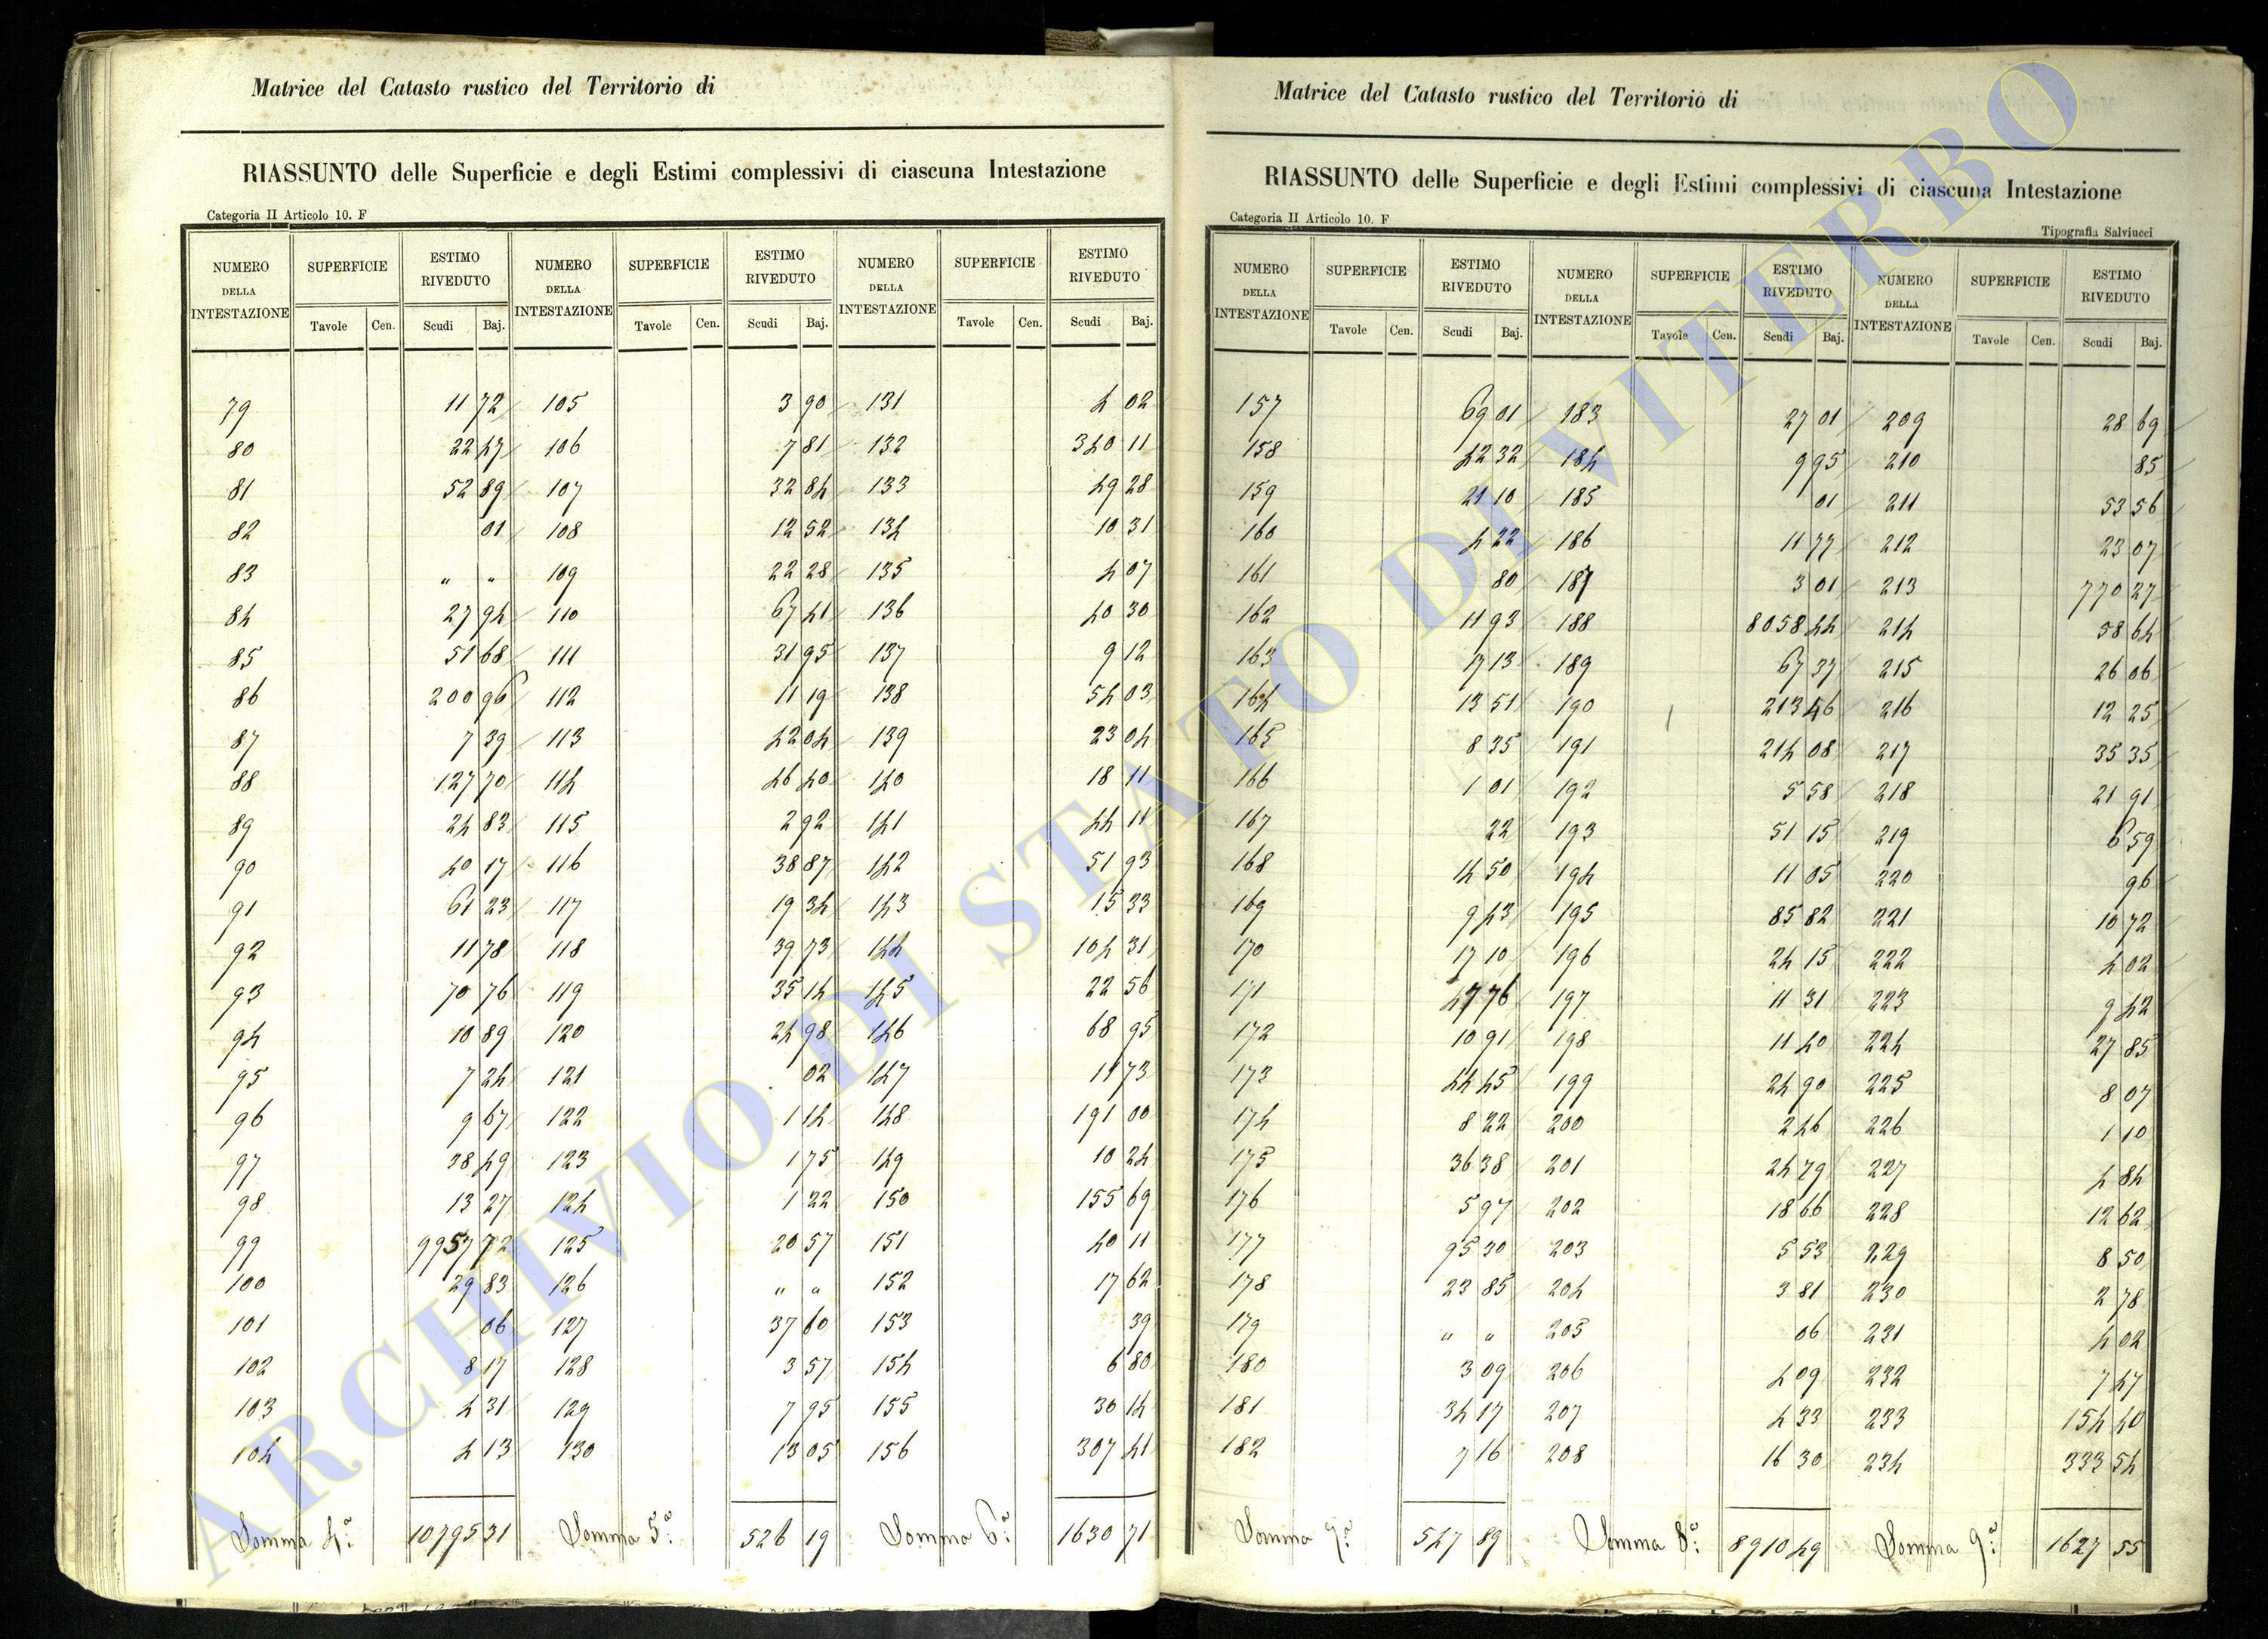 Matrice del Catasto rustico del Territorio di
RIASSUNTO delle Superficie e degli Estimi complessivi di ciascuna Intestazione
Categoria II Articolo 10. F
NUMERO DELLA INTESTAZIONE SUPERFICIE ESTIMO RIVEDUTO NUMERO DELLA INTESTAZIONE SUPERFICIE ESTIMO RIVEDUTO NUMERO DELLA INTESTAZIONE SUPERFICIE ESTIMO RIVEDUTO
Tavole Cen. Scudi Baj. Tavole Cen. Scudi Baj. Tavole Cen. Scudi Baj.
79 11 72 105 3 90 131 4 02
80 22 47 106 7 81 132 340 11
81 52 89 107 32 84 133 49 28
82 01 108 12 52 134 10 31
83 " " 109 22 28 135 4 07
84 27 94 110 67 41 136 40 30
85 51 68 111 31 95 137 9 12
86 200 96 112 11 19 138 54 03
87 7 39 113 42 04 139 23 04
88 127 70 114 46 40 140 18 11
89 24 83 115 2 92 141 44 11
90 40 17 116 38 87 142 51 93
91 61 23 117 19 34 143 15 33
92 11 78 118 39 73 144 104 31
93 70 76 119 35 14 145 22 56
94 10 89 120 24 98 146 68 95
95 7 24 121 02 147 11 73
96 9 67 122 1 14 148 191 00
97 38 49 123 1 75 149 10 24
98 13 27 124 1 22 150 155 69
99 9957 72 125 20 57 151 40 11
100 29 83 126 " " 152 17 62
101 06 127 37 60 153 39
102 8 17 128 3 57 154 6 80
103 4 31 129 7 95 155 30 14
104 4 13 130 13 05 156 307 41
Somma 4ª: 10795 31 Somma 5ª: 526 19 Somma 6ª: 1630 71
Matrice del Catasto rustico del Territorio di
RIASSUNTO delle Superficie e degli Estimi complessivi di ciascuna Intestazione
Categoria II Articolo 10. F Tipografia Salviucci
NUMERO DELLA INTESTAZIONE SUPERFICIE ESTIMO RIVEDUTO NUMERO DELLA INTESTAZIONE SUPERFICIE ESTIMO RIVEDUTO NUMERO DELLA INTESTAZIONE SUPERFICIE ESTIMO RIVEDUTO
Tavole Cen. Scudi Baj. Tavole Cen. Scudi Baj. Tavole Cen. Scudi Baj.
157 69 01 183 27 01 209 28 69
158 42 32 184 9 95 210 85
159 21 10 185 01 211 53 56
160 4 22 186 11 77 212 23 07
161 80 187 3 01 213 770 27
162 11 93 188 8058 44 214 58 64
163 17 13 189 67 37 215 26 06
164 13 51 190 213 46 216 12 25
165 8 35 191 214 08 217 35 35
166 1 01 192 5 58 218 21 91
167 22 193 51 15 219 6 59
168 14 50 194 11 05 220 96
169 9 43 195 85 82 221 10 72
170 17 10 196 24 15 222 4 02
171 47 76 197 11 31 223 9 42
172 10 91 198 11 40 224 27 85
173 44 45 199 24 90 225 8 07
174 8 22 200 2 46 226 1 10
175 36 38 201 24 79 227 4 84
176 5 97 202 18 66 228 12 62
177 95 30 203 5 53 229 8 50
178 23 85 204 3 81 230 2 78
179 " " 205 06 231 4 02
180 3 09 206 4 09 232 7 47
181 34 17 207 4 33 233 154 40
182 7 16 208 16 30 234 333 54
Somma 7ª: 547 89 Somma 8ª: 8910 49 Somma 9ª: 1627 55
ARCHIVIO DI STATO DI VITERBO